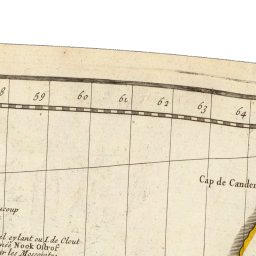 8 59 60 61 62 63 64
Cap de Canden
coup
el eylant ou I. de Clout
Nook Ostrof
ir les Moscovites